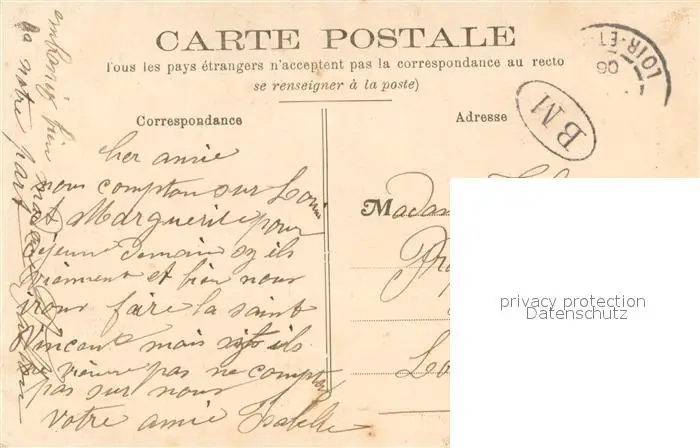 CARTE POSTALE
Tous les pays étrangers n'acceptent pas la correspondance au recto
se renseigner à la poste)
Correspondance
Adresse
LOIR-ET-
06
BM
cher amie
nous compton sur Loui
et Marguerite pour
dejeuné demain sy ils
viennent et bien nous
irons faire la saint
Vincent mais si ils
ne vienne pas ne compter
pas sur nous
votre amie Isabelle
embrasser bien
de notre part
Madam
Pro
privacy protection
Datenschutz